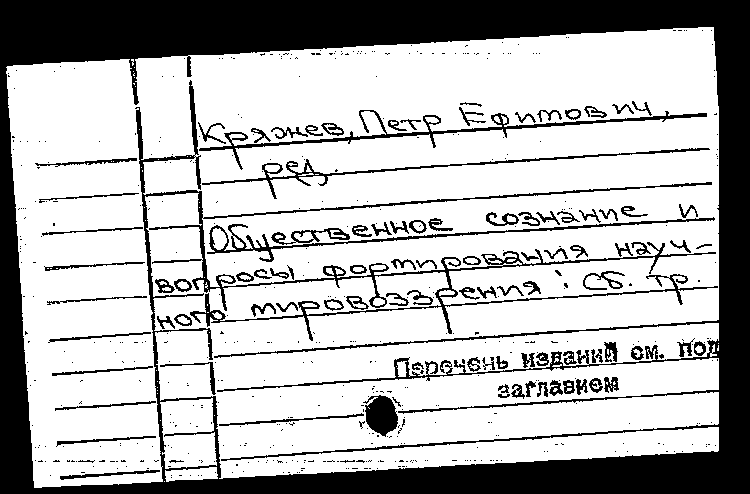 Кряжев, Петр Ефимович,
ред.
Общественное сознание и
вопросы формирования науч-
ного мировоззрения: Сб. тр.
Перечень изданий см. под
заглавием